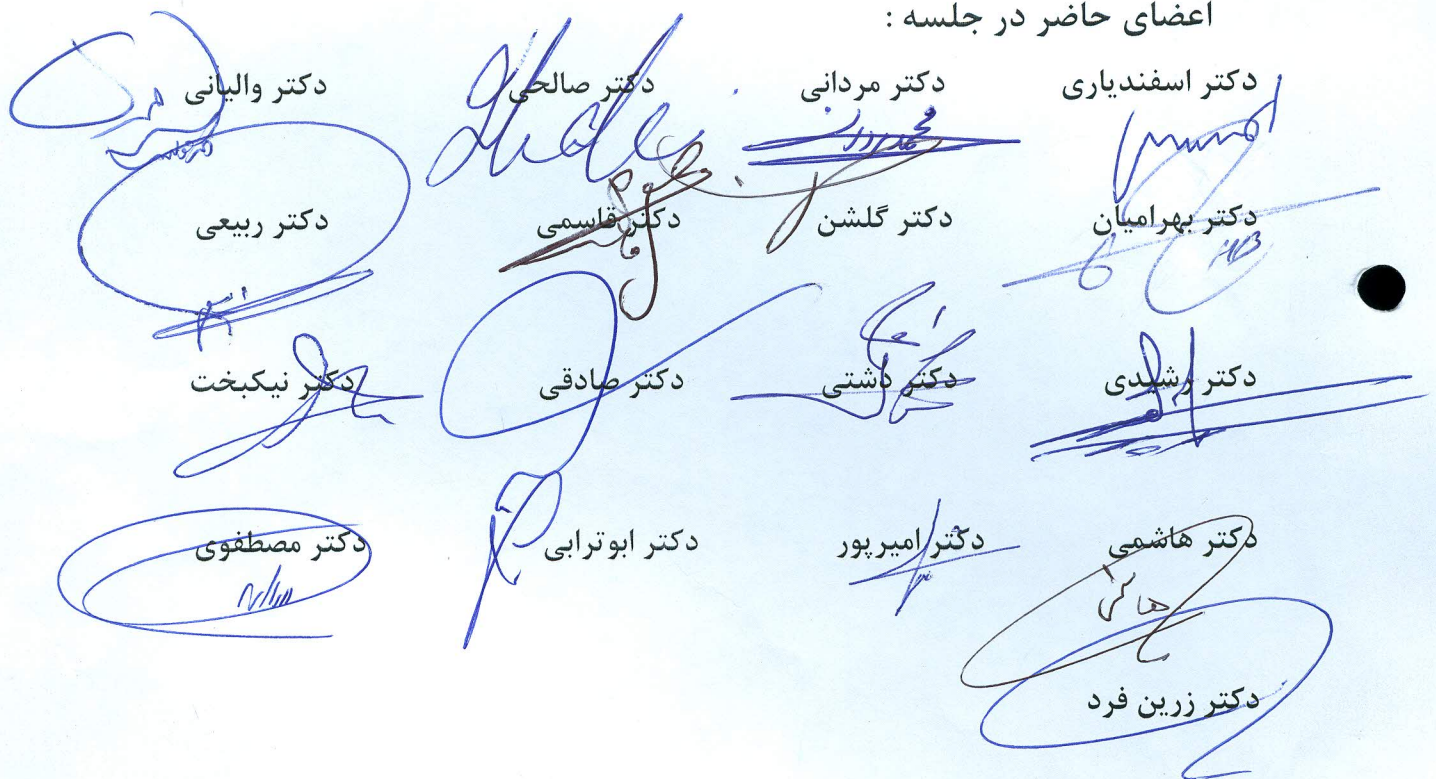 اعضای حاضر در جلسه :
دکتر اسفندیاری دکتر مردانی دکتر صالحی دکتر والیانی
دکتر بهرامیان دکتر گلشن دکتر قاسمی دکتر ربیعی
دکتر رشیدی دکتر دشتی دکتر صادقی دکتر نیکبخت
دکتر هاشمی دکتر امیرپور دکتر ابوترابی دکتر مصطفوی
دکتر زرین فرد